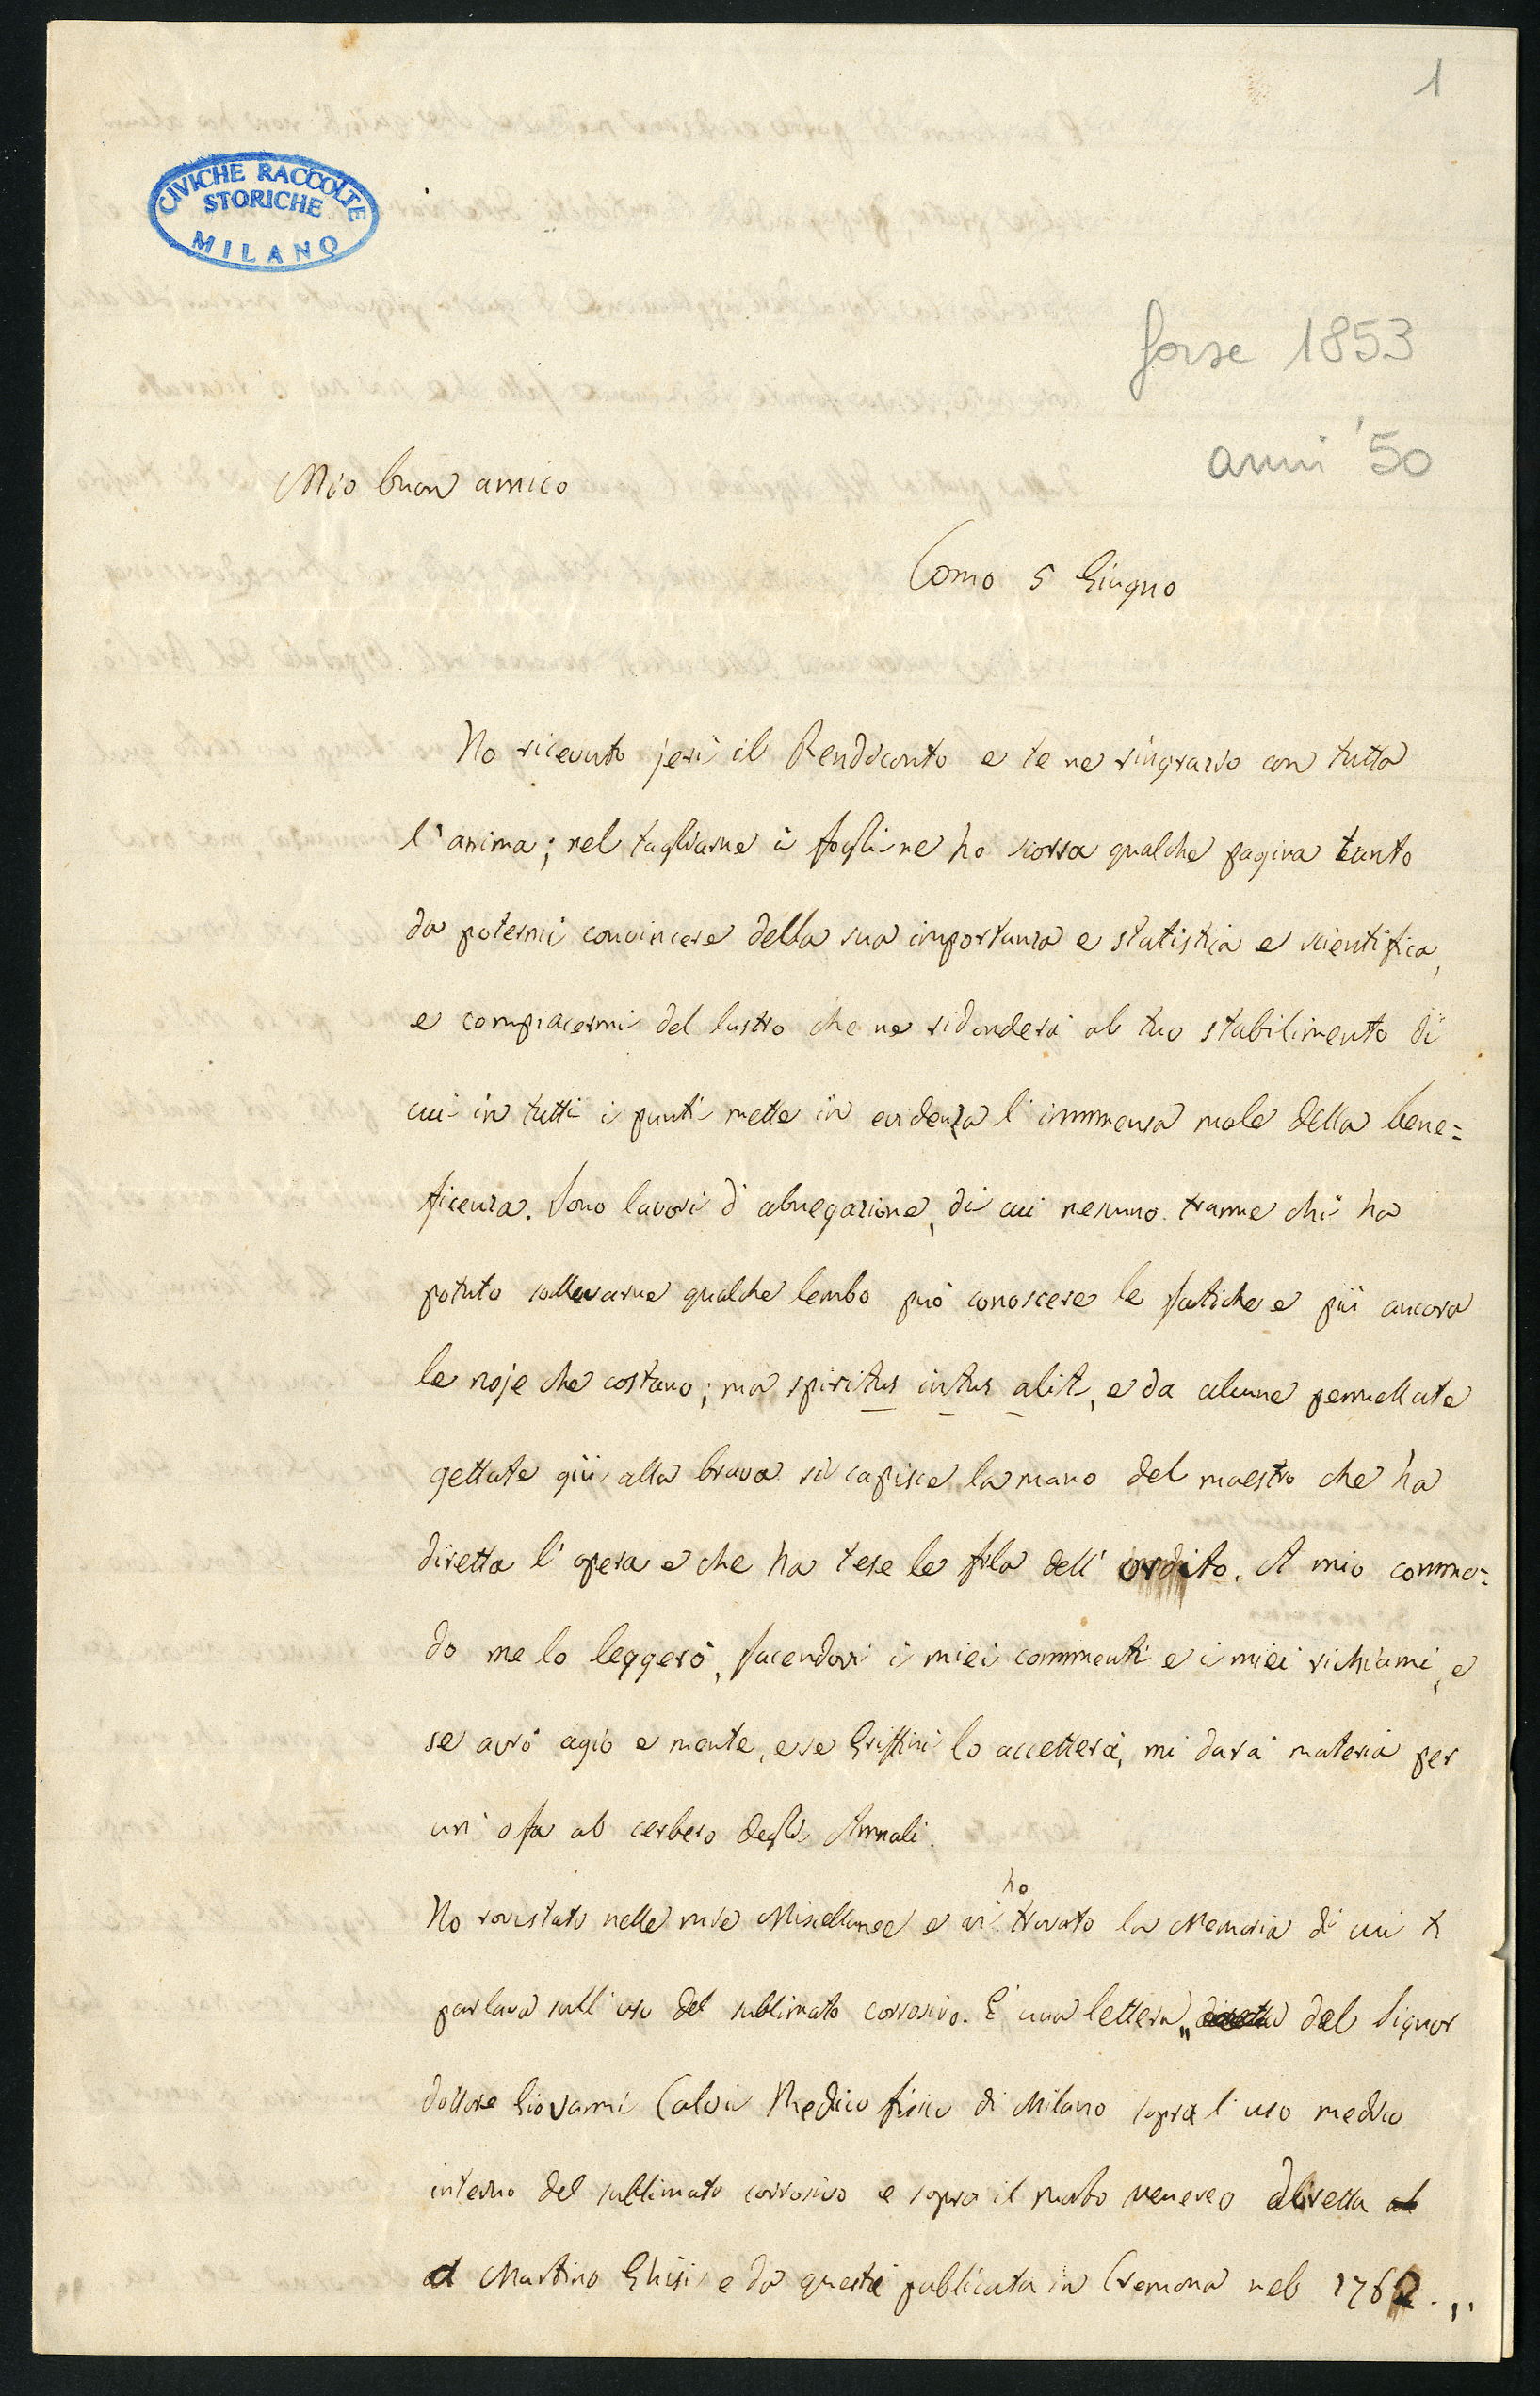 1
CIVICHE RACCOLTE
STORICHE
MILANO
forse 1853
anni '50
Mio buon amico
Como 5 Giugno
Ho ricevuto jeri il Rendiconto e te ne ringrazio con tutta
l'anima; nel tagliarne i fogli ne ho scorsa qualche pagina tanto
da potermi convincere della sua importanza e statistica e scientifica,
e compiacermi del lustro che ne ridonderà al tuo stabilimento di
cui in tutti i punti mette in evidenza l'immensa mole della bene=
ficenza. Sono lavori d'abnegazione, di cui nessuno tranne chi ha
potuto sollevarne qualche lembo può conoscere le fatiche e più ancora
le noje che costano; ma spiritus intus alit, e da alcune pennellate
gettate giù alla brava si capisce la mano del maestro che ha
diretta l'opera e che ha tese le fila dell'ordito. A mio commo=
do me lo leggerò, facendovi i miei commenti e i miei richiami, e
se avrò agio e mente, e se Griffini lo accetterà, mi darà materia per
un'ofa al cerbero degli Annali.
Ho rovistato nelle mie Miscellanee e vi ho trovato la Memoria di cui ti
parlava sull'uso del sublimato corrosivo. È una lettera „ diretta del Signor
dottore Giovanni Calvi Medico fisico di Milano sopra l'uso medico
interno del sublimato corrosivo e sopra il morbo venereo diretta al
a Martino Ghisi e da questi publicata in Cremona nel 1762. „